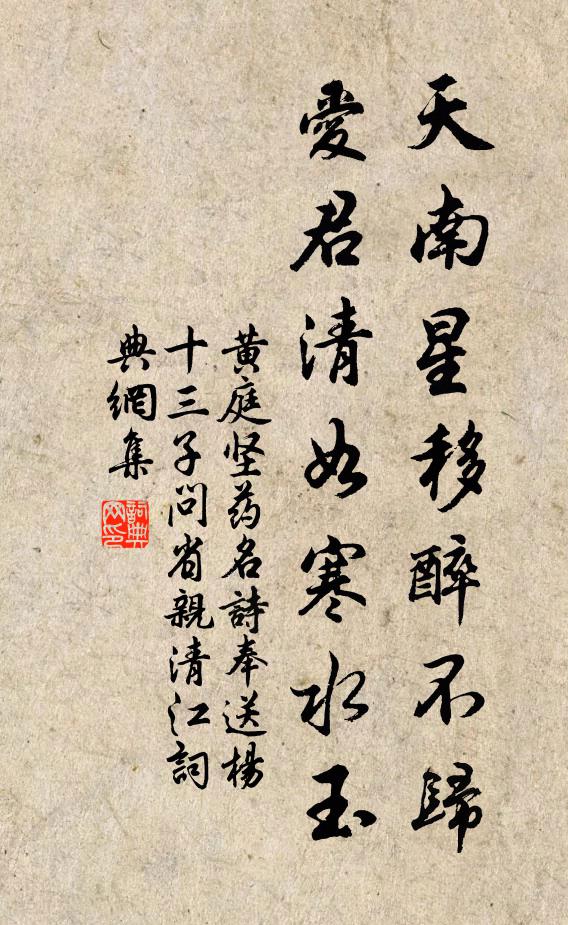 天南星移醉不歸
愛君清如寒水玉
黄庭坚药名詩奉送楊
十三子问省親清江詞
典網集
詞典網印